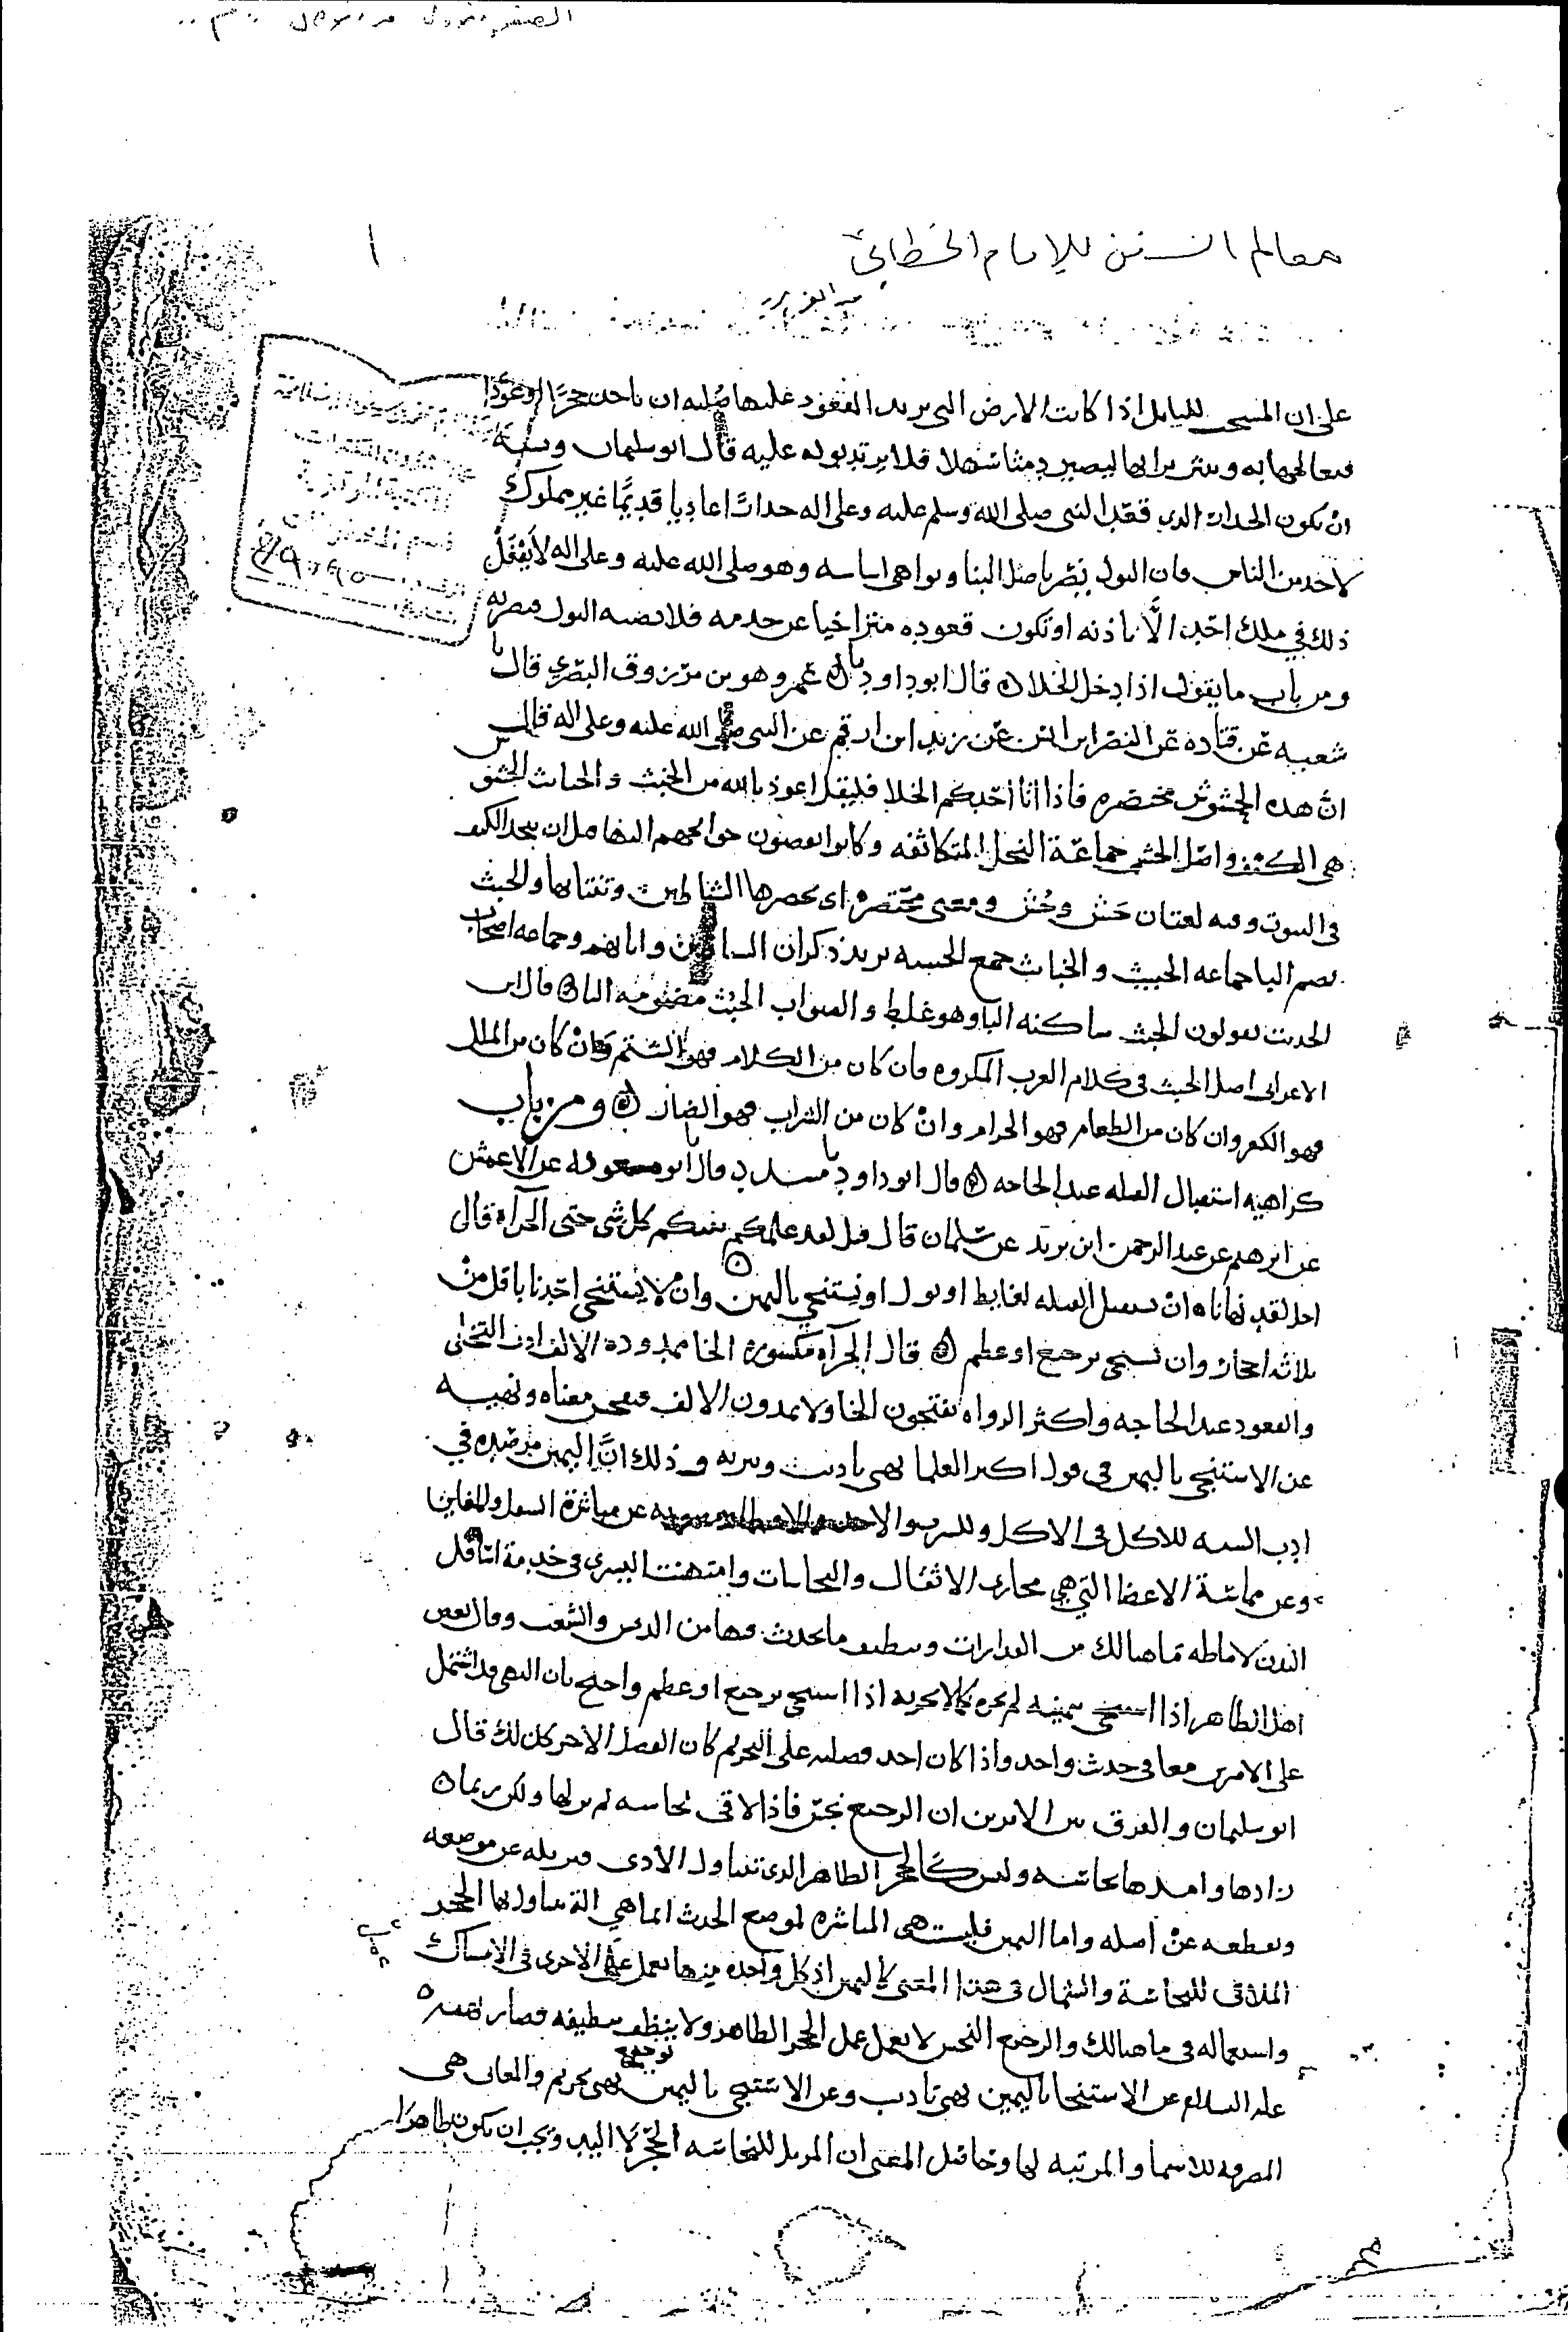 معالم السنن للإمام الخطابي
١
على ان المستحب للبايل اذا كانت الارض التي يريد القعود عليها صُلبه ان ياخذ حجرًا او عودًا
فيعالجها به ويثير ترابها ليصير دمثا سهلا فلا يرتد بوله عليه قال ابو سليمان ويشبه
ان يكون الجدار الذي قعد النبي صلى الله وسلم عليه وعلى اله جدارًا عاديا قديمًا غير مملوك
لاحد من الناس فان البول يضر باصل البنا ويوهي اساسه وهو صلى الله عليه وعلى اله لا يَفعَل
ذلك في ملك احد الَّا باذنه او يكون قعوده متراخيا عن جذمه فلا يصيبه البول فيضر به
ومن باب ما يقول اذا دخل الخلا قال ابو داود نا عمرو وهو بن مرزوق البصري قال نا
شعبه عن قتاده عن النضر ابن انس عن زيد ابن ارقم عن النبي صلى الله عليه وعلى اله قال
انَّ هذه الحشوش محتضره فاذا اتا احدكم الخلا فليقل اعوذ بالله من الخبث والخبائث الحشوش
هي الكنف واصل الحش جماعة النخل المتكاثفه وكانوا يقضون حوايجهم اليها قبل ان يتخذ الكنف
في البيوت وفيه لغتان حَش وحُش ومعنى محتضره اي يحضرها الشياطين وتنتابها والخبث
بضم البا جماعه الخبيث والخبائث جمع الخبيثه يريد ذكران الشياطين واناثهم وجماعه اصحاب
الحديث يقولون الخبث ساكنه البا وهو غلط والصواب الخبُث مضمومه البا قال ابن
الاعرابي اصل الخبث في كلام العرب المكروه فان كان من الكلام فهو الشتم وان كان من الملل
فهو الكفر وان كان من الطعام فهو الحرام وان كان من الشراب فهو الضار ومن باب
كراهيه استقبال القبله عند الحاجه قال ابو داود نا مسدد قال نا ابو معويه عن الاعمش
عن ابرهيم عن عبد الرحمن ابن يزيد عن سلمان قال قيل لقد علمكم نبيكم كل شي حتى الخرآه قال
اجل لقد نهانا ان نستقبل القبله لغايط او بول او نستنجي باليمين وان لا يستنجي احدنا باقل من
ثلاثه احجار وان نستنجي برجيع او عظم قال الخرآه مكسوره الخا ممدوده الالف ادب التخلي
والقعود عند الحاجه واكثر الرواه يفتحون الخا ولا يمدون الالف فيفحش معناه ونهيه
عن الاستنجي باليمين في قول اكثر العلما نهي تاديب وتنزيه وذلك انَّ اليمين مرصده في
ادب السنه للاكل في الاكل والشرب والاخذ والاعطا مصونه عن مباشرة السفل والمغابن
وعن مماسة الاعضا التي هي مجاري الاثفال والنجاسات وامتهنت اليسرى في خدمة اسافل
البدن لاماطه ما هنالك من القذارات وتنظيف ما يحدث فيها من الدنس والشعث وقال بعض
اهل الظاهر اذا استنجى بيمينه لم يجزه كما لا يجزيه اذا استنجى برجيع او عظم واحتج بان النهي قد اشتمل
على الامرين معا في حديث واحد واذا كان احد فصليه على التحريم كان الفصل الاخر كذلك قال
ابو سليمان والفرق بين الامرين ان الرجيع نجس فاذا لاقى نجاسه لم يزلها ولكن ربما
زادها وامدها نجاسه وليس كالحجر الطاهر الذي يتناول الأذى فيزيله عن موضعه
ويقطعه عن اصله واما اليمين فليست هي المباشره لموضع الحدث انما هي آلة يتناول بها الحجر
الملاقي للنجاسة والشمال في هذا المعنى كاليمين اذ كل واحده منهما تعمل عمل الاخرى في الامساك
واستعماله في ما هنالك والرجيع النجس لا يعمل عمل الحجر الطاهر ولا ينظف تنظيفه فصار نهيه
عليه السلام عن الاستنجا باليمين نهي تاديب وعن الاستنجي باليمين برجيع نهي تحريم والمعاني هي
المصرفه للاسما والمرتبه لها وحاصل المعنى ان المزيل للنجاسه الحجر لا اليد ويجب ان يكون طاهرا